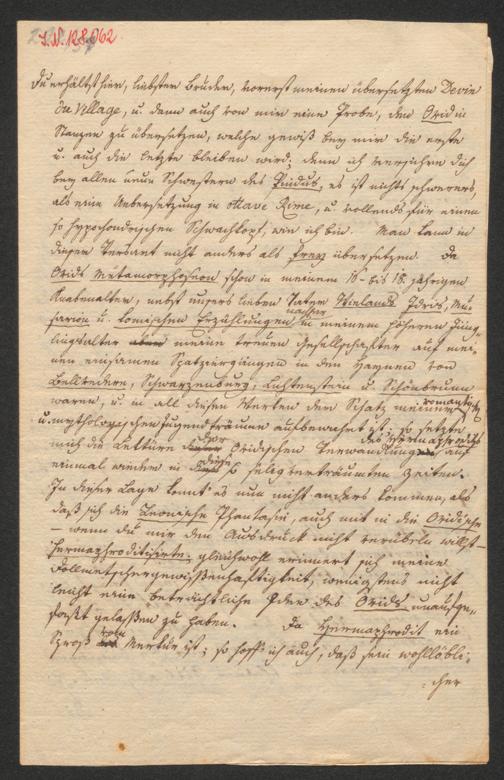 I.N. 128.062
Du erhältst hier, liebster Bruder, vorerst meinen übersetzten Devin
du Village, u. dann auch von mir eine Probe, den Ovid in
Stanzen zu übersetzen, welche gewiß bey mir die erste
u. auch die letzte bleiben wird; denn ich versichere dich
bey allen neun Schwestern des Pindus, es ist nichts schwerers,
als eine Uebersetzung in ottave Rime, u. vollends für einen
so hypochondrischen Schwachkopf, wie ich bin. Man kann in
dieser Versart nicht anders als frey übersetzen. Da
Ovids Metamorphosen schon in meinem 16- bis 18. jährigen
Knabenalter, nebst unsers lieben Vater Wielands Idris, Mu-
sarion u. komischen Erzählungen nachher in meinem höheren Jüng-
lingsalter meine treuen Gesellschafter auf mei-
nen einsamen Spatziergängen in den Haynen von
Bellvedern, Schwarzenburg, Lichtenstein u. Schönbrunn
waren, u. in all diesen Werken der Schatz meiner romantisch
u. mythologischen Jugendträumen aufbewahrt ist; so setzte
mich die Lektüre dieser Ovidischen Verwandlung des Hermaphrodits auf
einmal wieder in diese so selig verträumten Zeiten.
In dieser Lage konnt' es nun nicht anders kommen, als
daß sich die Leonische Phantasie, auch mit in die Ovidische
— wenn du mir den Ausdruck nicht verübeln willst —
hermaphroditisirte; gleichwohl erinnert sich meine
Dollmetschergewissenhaftigkeit, wenigstens nicht
leicht eine beträchtliche Idee des Ovids unausge-
faßt gelassen zu haben. Da Hermaphrodit ein
Sproß vom Merkur ist; so hoff' ich auch, daß sein wohllöbli-
cher